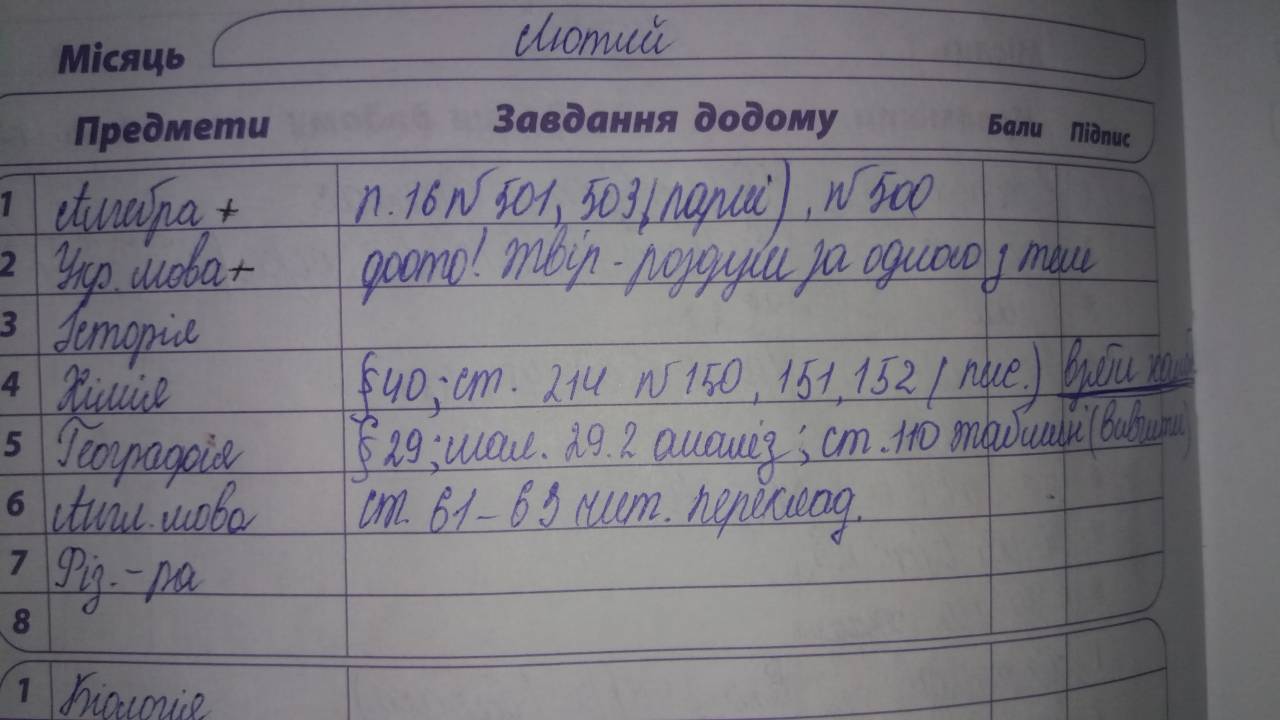 Місяць Лютий
Предмети Завдання додому Бали Підпис
1 Алгебра + п. 16 № 501, 503 (парні), № 500
2 Укр. мова + фото! Твір - роздум за одною з тем
3 Історія
4 Хімія § 40; ст. 214 № 150, 151, 152 (пис.)
5 Географія § 29; мал. 29.2 аналіз; ст. 110 (вивчити)
6 Англ. мова ст. 61-63 чит. переклад.
7 Фіз. - ра
8
1 Біологія